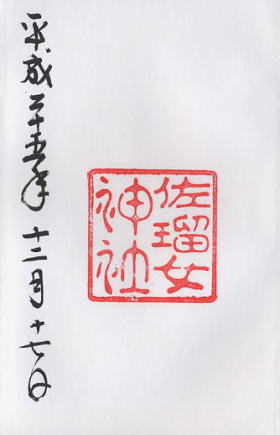 平成二十五年十二月十七日
佐瑠女
神社